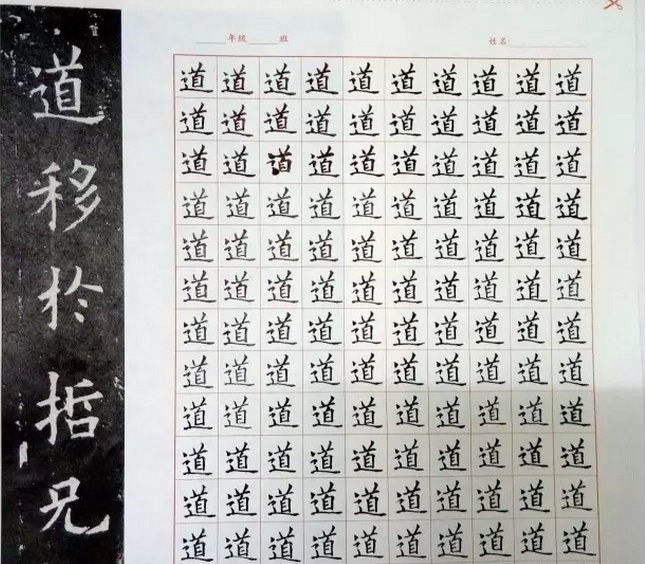 道移於哲兄
______年级______班 姓名:______________
道道道道道道道道道道
道道道道道道道道道道
道道道道道道道道道道
道道道道道道道道道道
道道道道道道道道道道
道道道道道道道道道道
道道道道道道道道道道
道道道道道道道道道道
道道道道道道道道道道
道道道道道道道道道道
道道道道道道道道道道
道道道道道道道道道道